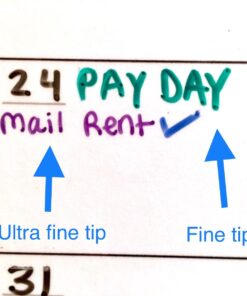 24 PAY DAY
Mail Rent ✓
Ultra fine tip Fine tip
31